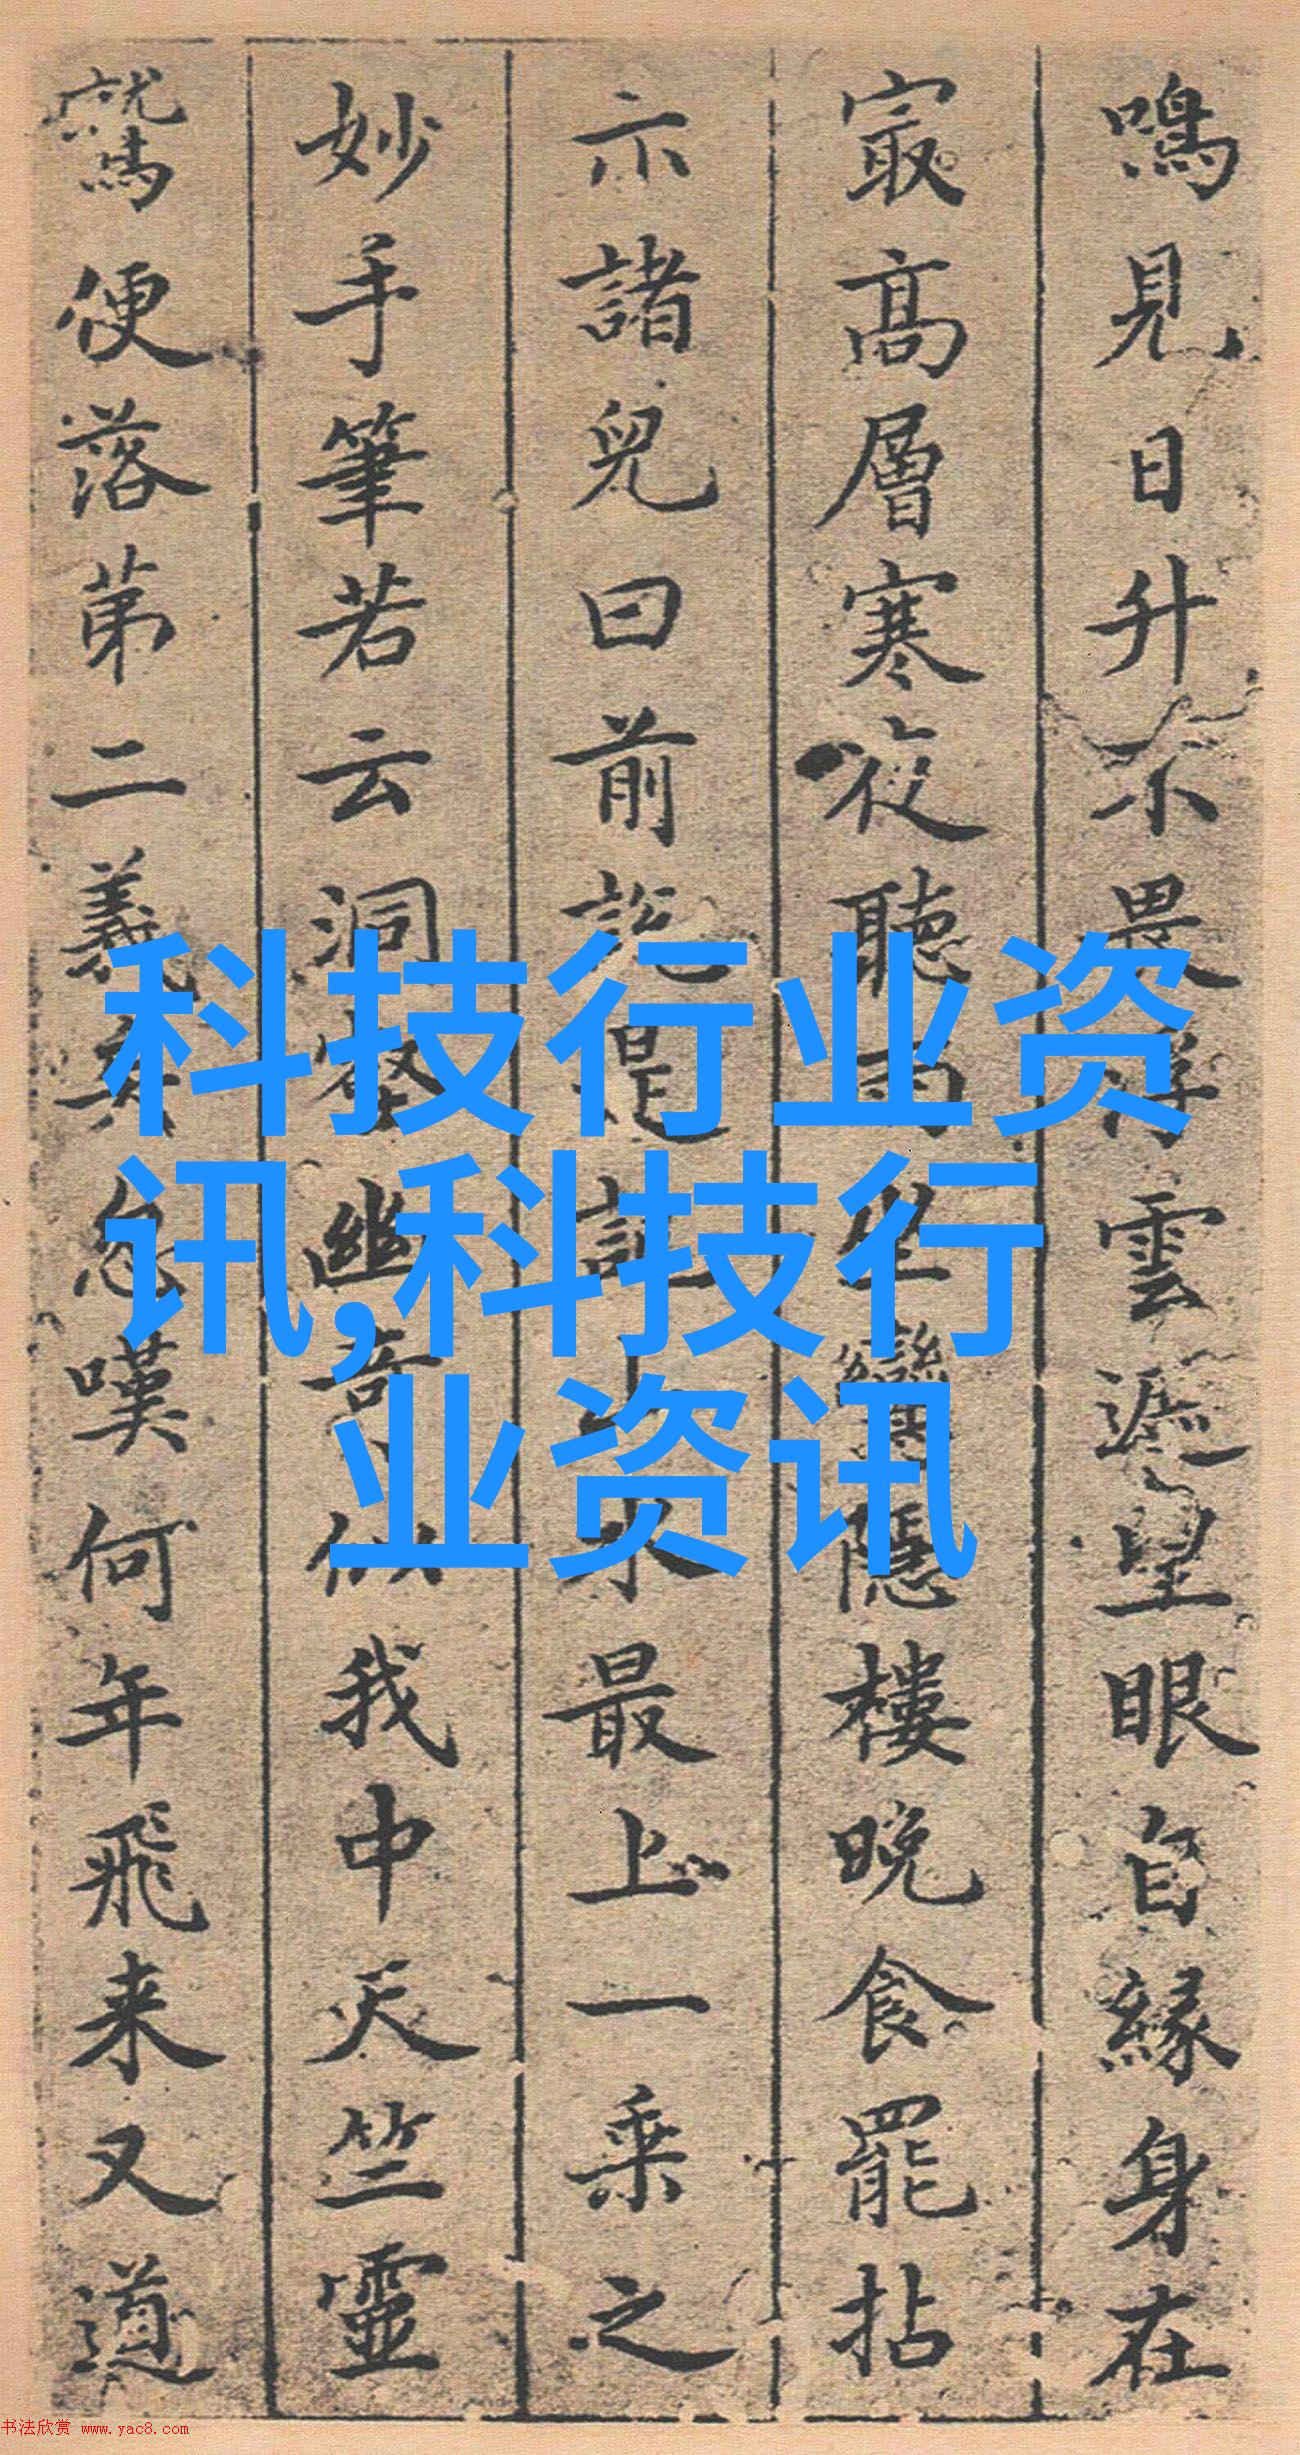 鳴見日升不畏浮雲遮望眼自緣身在
㝡高層寒夜聽雨坐隱樓晚食罷拈
示諸兒曰前說是記水最上一乘之
妙手筆若云洞壑幽奇似我中天竺靈
鷲便落苐二義矣忽嘆何年飛来又道
科技行业资
讯,科技行
业资讯
书法欣赏 www.yac8.com